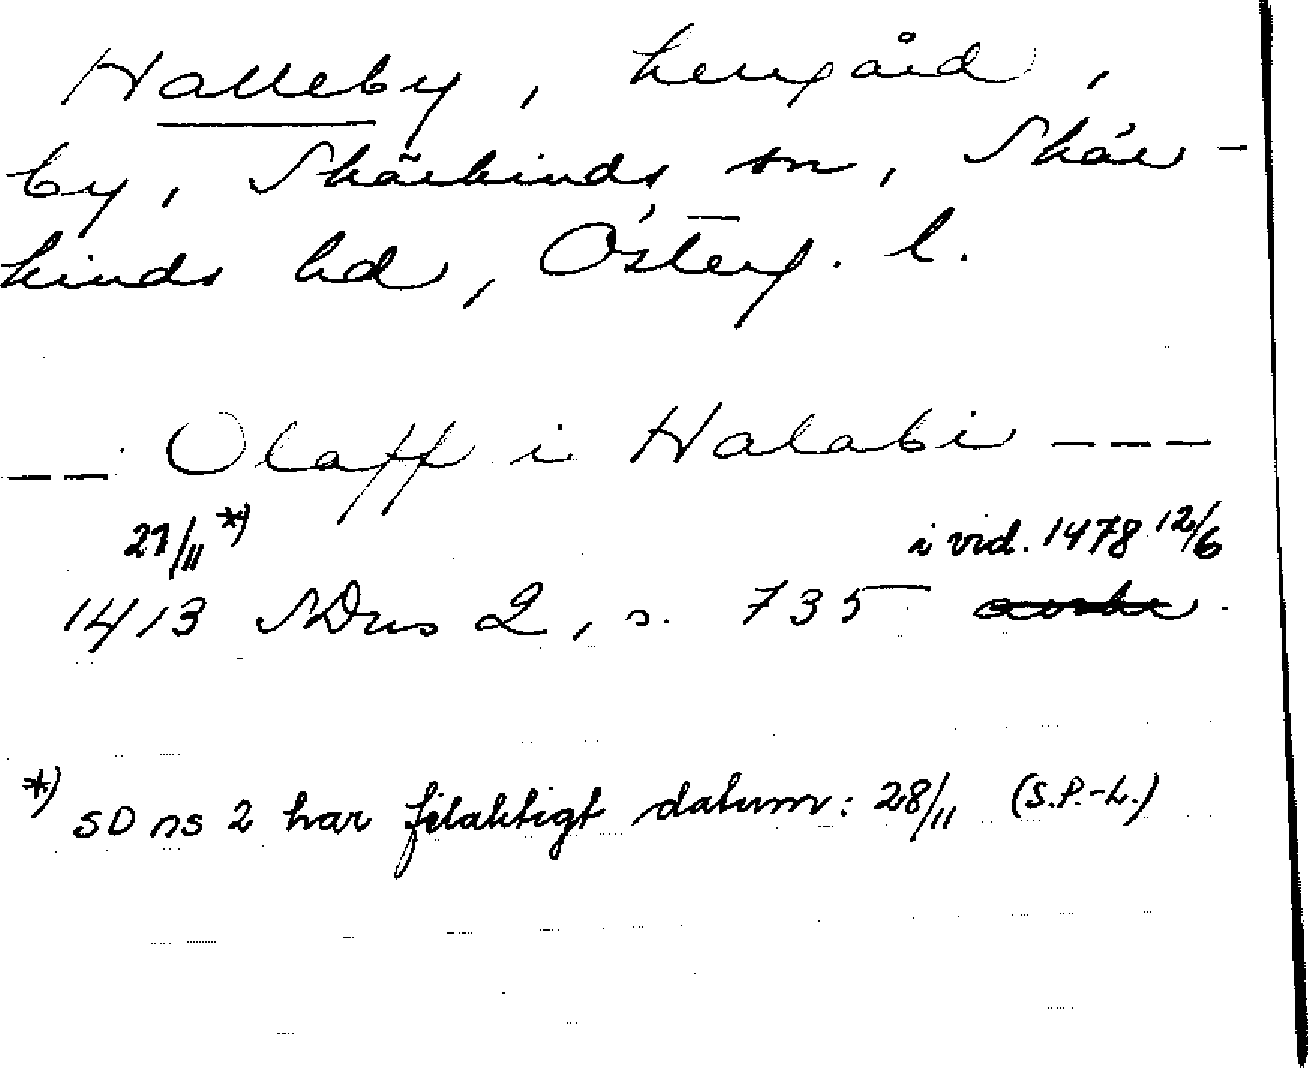 Halleby, herrgård,
by, Skärkinds sn, Skär-
kinds hd, Österg. l.
--- Olaff i Halabi ---
27/11 *) i vid. 1478 12/6
1413 SDns 2, s. 735 avskr.
*) SD ns 2 har felaktigt datum: 28/11 (S.P.-L.)